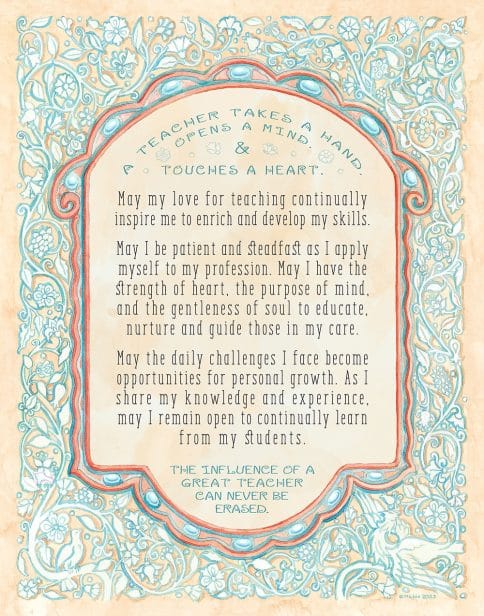 A TEACHER TAKES A HAND,
OPENS A MIND,
&
TOUCHES A HEART.
May my love for teaching continually
inspire me to enrich and develop my skills.
May I be patient and steadfast as I apply
myself to my profession. May I have the
strength of heart, the purpose of mind,
and the gentleness of soul to educate,
nurture and guide those in my care.
May the daily challenges I face become
opportunities for personal growth. As I
share my knowledge and experience,
may I remain open to continually learn
from my students.
THE INFLUENCE OF A
GREAT TEACHER
CAN NEVER BE
ERASED.